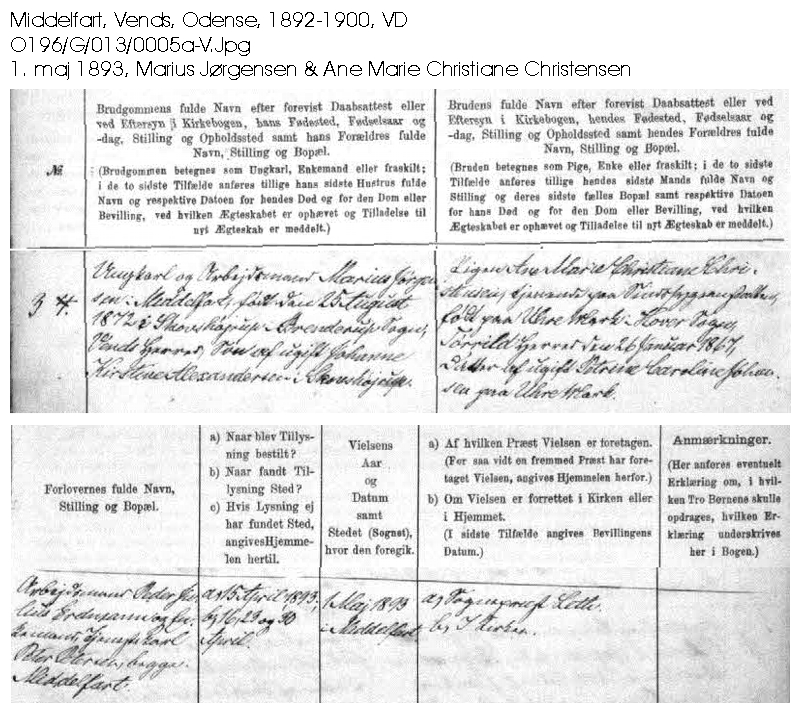 Middelfart, Vends, Odense, 1892-1900, VD
O196/G/013/0005a-V.Jpg
1. maj 1893, Marius Jørgensen & Ane Marie Christiane Christensen
№
Brudgommens fulde Navn efter forevist Daabsattest eller
ved Eftersyn i Kirkebogen, hans Fødested, Fødselsaar og
-dag, Stilling og Opholdssted samt hans Forældres fulde
Navn, Stilling og Bopæl.
(Brudgommen betegnes som Ungkarl, Enkemand eller fraskilt;
i de to sidste Tilfælde anføres tillige hans sidste Hustrus fulde
Navn og respektive Datoen for hendes Død og for den Dom eller
Bevilling, ved hvilken Ægteskabet er ophævet og Tilladelse til
nyt Ægteskab er meddelt.)
Brudens fulde Navn efter forevist Daabsattest eller ved
Eftersyn i Kirkebogen, hendes Fødested, Fødselsaar og
-dag, Stilling og Opholdssted samt hendes Forældres fulde
Navn, Stilling og Bopæl.
(Bruden betegnes som Pige, Enke eller fraskilt; i de to sidste
Tilfælde anføres tillige hendes sidste Mands fulde Navn og
Stilling og deres sidste fælles Bopæl samt respektive Datoen
for hans Død og for den Dom eller Bevilling, ved hvilken
Ægteskabet er ophævet og Tilladelse til nyt Ægteskab er meddelt.)
3
Ungkarl og Arbejdsmand Marius Jørgen-
sen Middelfart, født den 25 August
1872 i Skovshøjrup Brenderup Sogn,
Vends Herred, Søn af ugift Johanne
Kirstine Alexandersen i Skovshøjrup.
Pigen Ane Marie Christiane Chri-
stensen, tjenende paa Sindssygeanstalten,
født paa Uhre Mark Hover Sogn,
Tørrild Herred den 26 Januar 1867,
Datter af ugift Petrine Caroline Johan-
sen paa Uhre Mark.
Forlovernes fulde Navn,
Stilling og Bopæl.
a) Naar blev Tillys-
ning bestilt?
b) Naar fandt Til-
lysning Sted?
c) Hvis Lysning ej
har fundet Sted,
angives Hjemme-
len hertil.
Vielsens
Aar
og
Datum
samt
Stedet (Sognet),
hvor den foregik.
a) Af hvilken Præst Vielsen er foretagen.
(For saa vidt en fremmed Præst har fore-
taget Vielsen, angives Hjemmelen herfor.)
b) Om Vielsen er forrettet i Kirken eller
i Hjemmet.
(I sidste Tilfælde angives Bevillingens
Datum.)
Anmærkninger.
(Her anføres eventuelt
Erklæring om, i hvil-
ken Tro Børnene skulle
opdrages, hvilken Er-
klæring underskrives
her i Bogen.)
Arbejdsmand Peder
og
Peter begge
Middelfart.
a) 15 April 1893,
b) 16, 23 og 30
April.
1 Maj 1893
i Middelfart
a) Sognepræst Leth.
b) I Kirken.